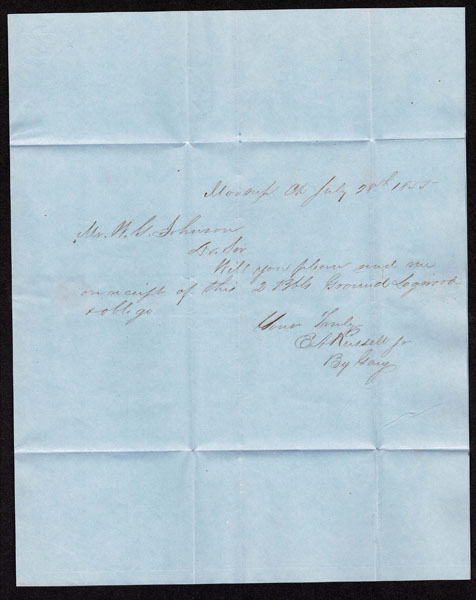 Moosup Ct July 28th 1845
Mr. W. G. Johnson
Dr. Sir
Will you please send me
on receipt of this 2 Bbls Ground Logwood
& oblige
Yours Truly
E A Russell Jr
By Gary